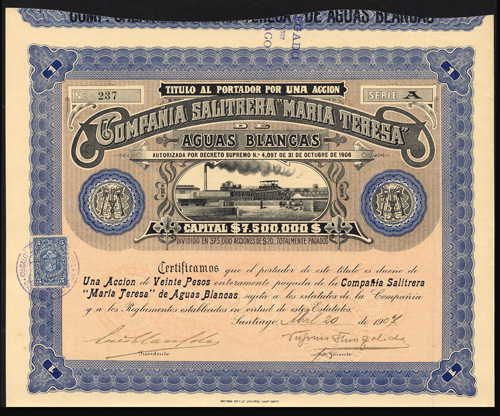 DE AGUAS BLANCAS
TITULO AL PORTADOR POR UNA ACCION
Nº 237
SERIE A
COMPAÑIA SALITRERA "MARIA TERESA"
DE
AGUAS BLANCAS
AUTORIZADA POR DECRETO SUPREMO N.º 4,097 DE 31 DE OCTUBRE DE 1906
CAPITAL $7.500,000 $
DIVIDIDO EN 375,000 ACCIONES DE $20, TOTALMENTE PAGADOS
Certificamos que el portador de este titulo es dueño de
Una Accion de Veinte Pesos enteramente pagada de la Compañia Salitrera
"Maria Teresa" de Aguas Blancas sujeta a los estatutos de la Compañia
y a los Reglamentos establecidos en virtud de estos Estatutos.
Santiago, Abril 20 de 1907
Presidente
Gerente